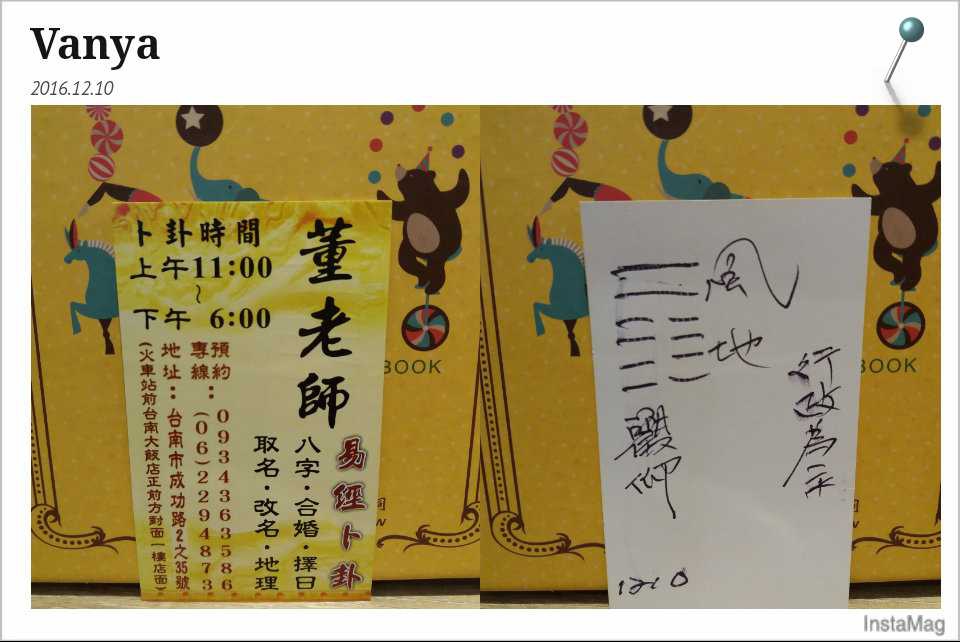 Vanya
2016.12.10
董老師
易經卜卦
八字・合婚・擇日
取名・改名・地理
卜卦時間
上午11:00
~
下午 6:00
預約專線：0934363586
(06)2294873
地址：台南市成功路2之35號
(火車站前台南大飯店正前方對面一樓店面)
BOOK
風
地
觀
仰
行政為主
1210
InstaMag